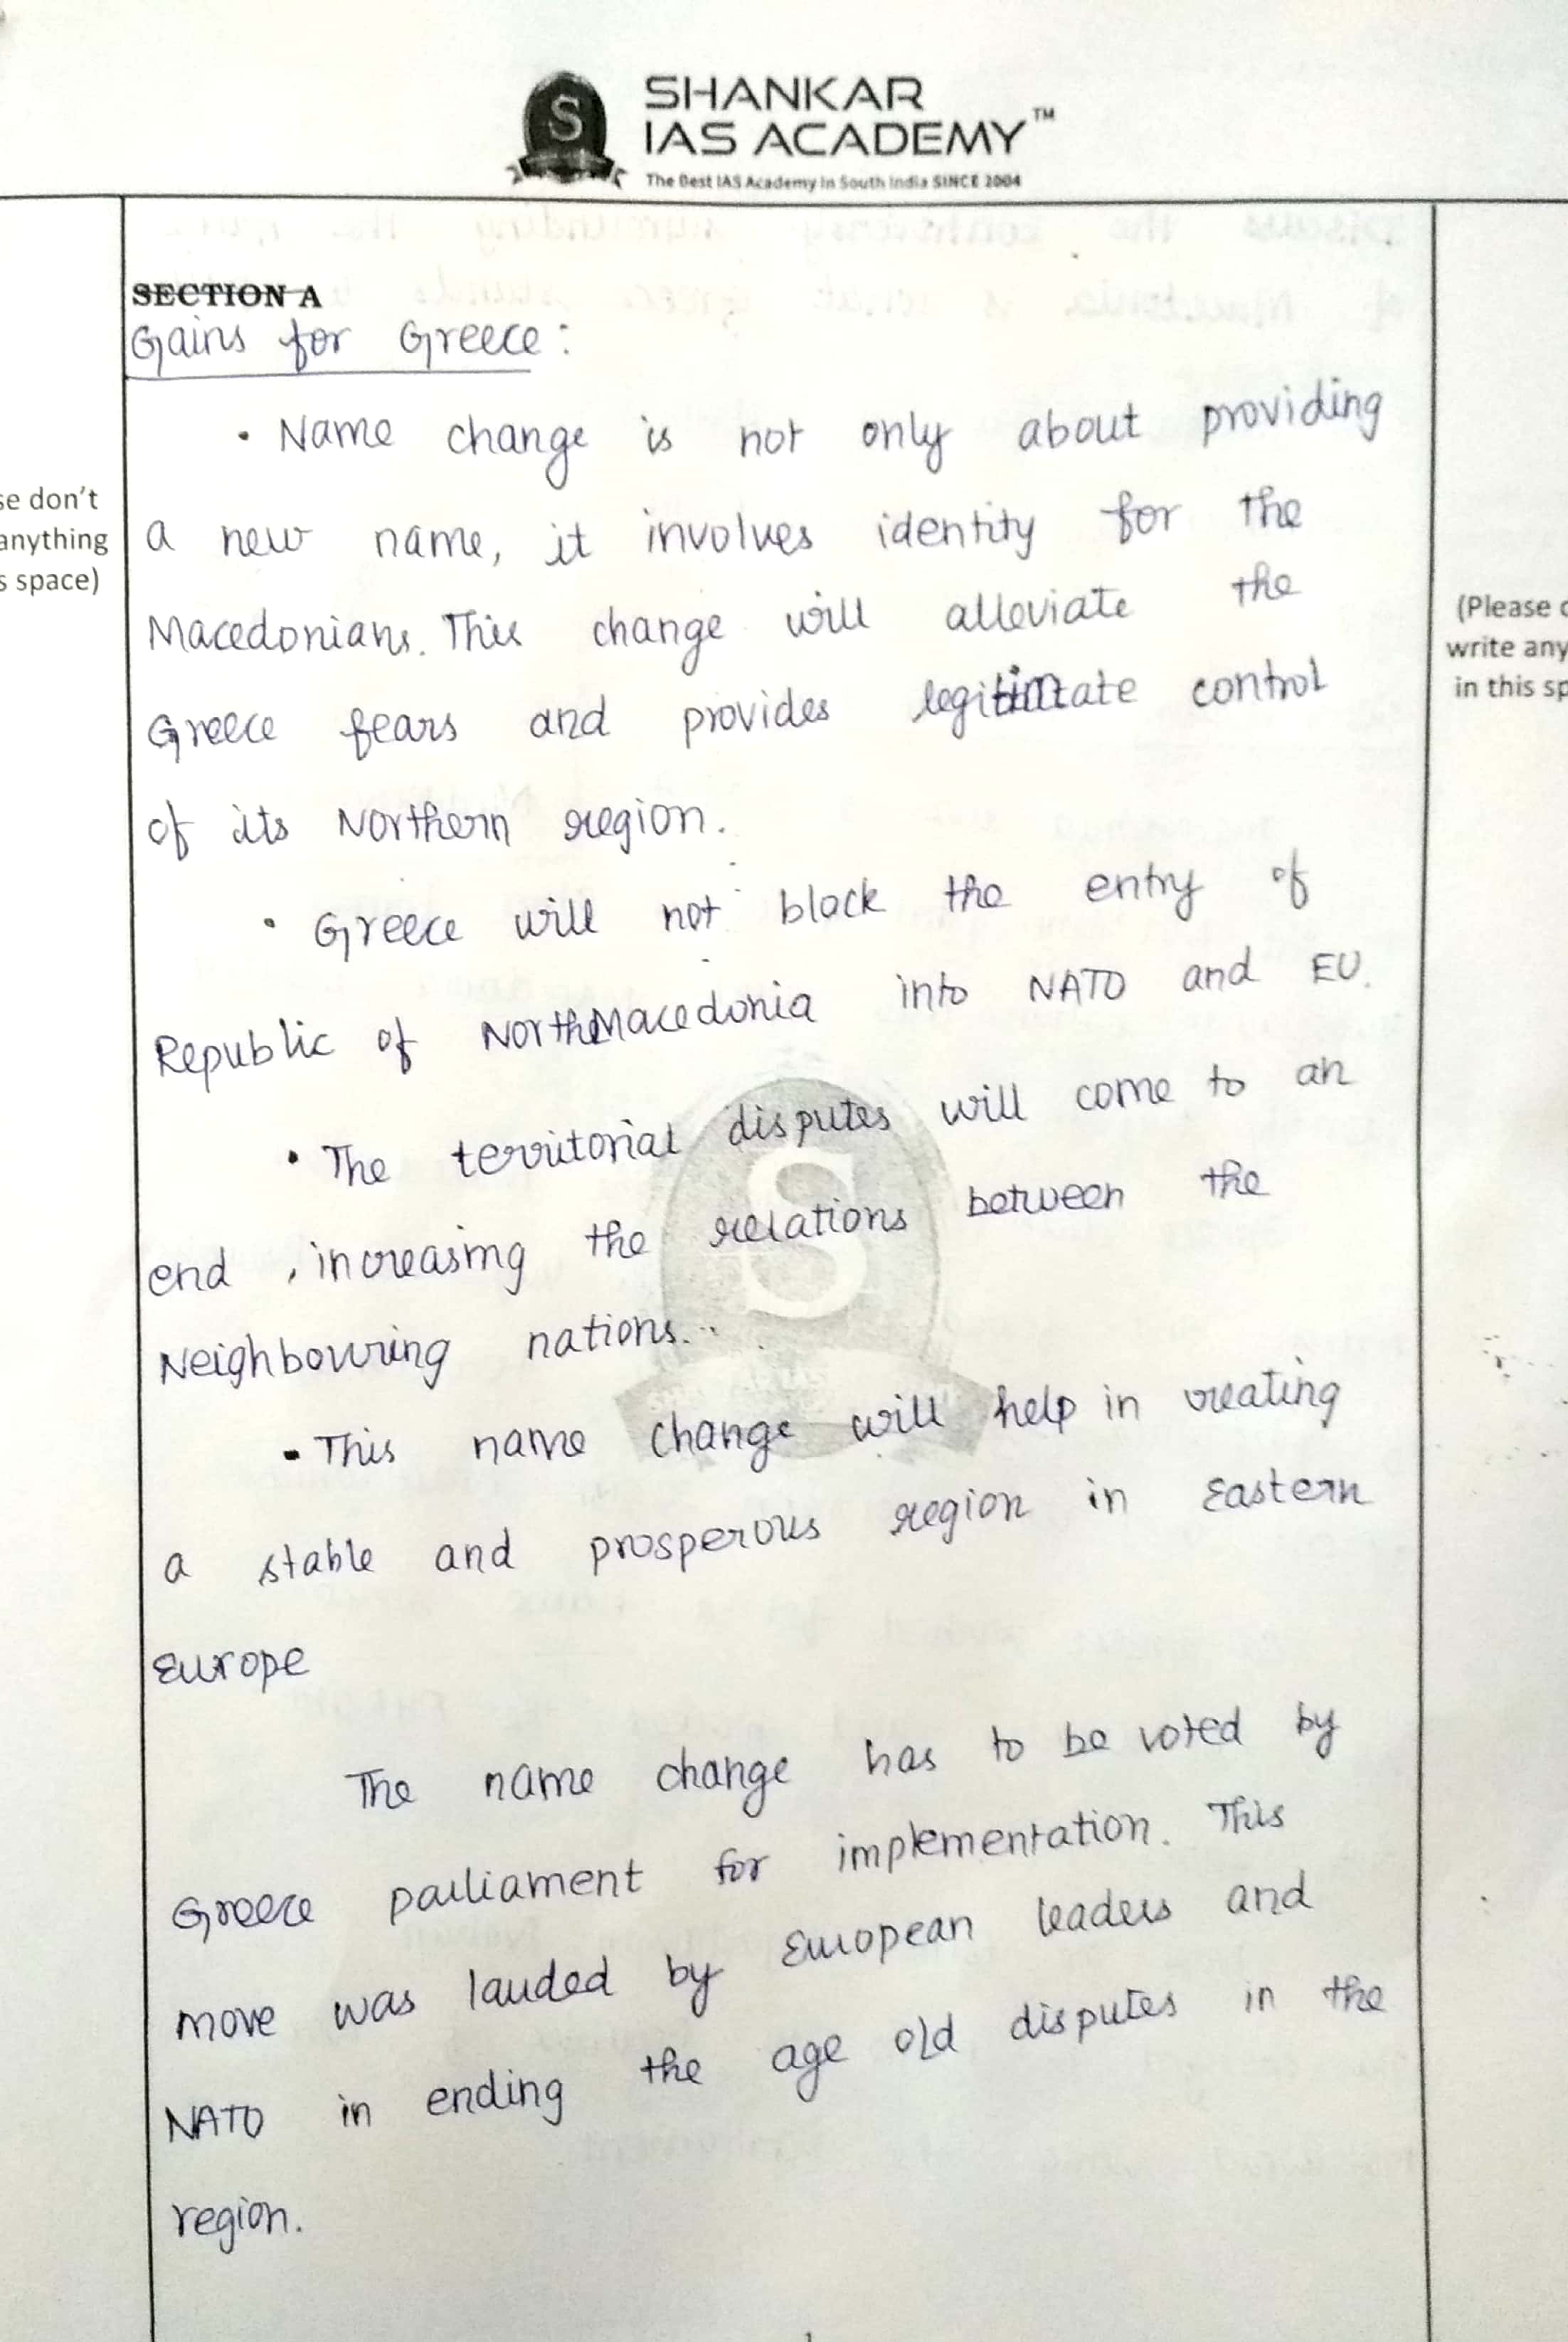 S
SHANKAR
IAS ACADEMY™
The Best IAS Academy In South India SINCE 2004
SECTION A
Gains for Greece:
• Name change is not only about providing
a new name, it involves identity for the
Macedonians. This change will alleviate the
Greece fears and provides legitimate control
of its Northern region.
• Greece will not block the entry of
Republic of North Macedonia into NATO and EU.
• The territorial disputes will come to an
end, increasing the relations between the
Neighbouring nations.
• This name change will help in creating
a stable and prosperous region in Eastern
Europe
The name change has to be voted by
Greece parliament for implementation. This
move was lauded by European leaders and
NATO in ending the age old disputes in the
region.
se don't
anything
s space)
(Please
write any
in this sp
S